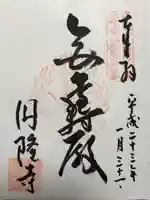 奉拝
平成二十三年
一月三十一
無量寿殿
円隆寺